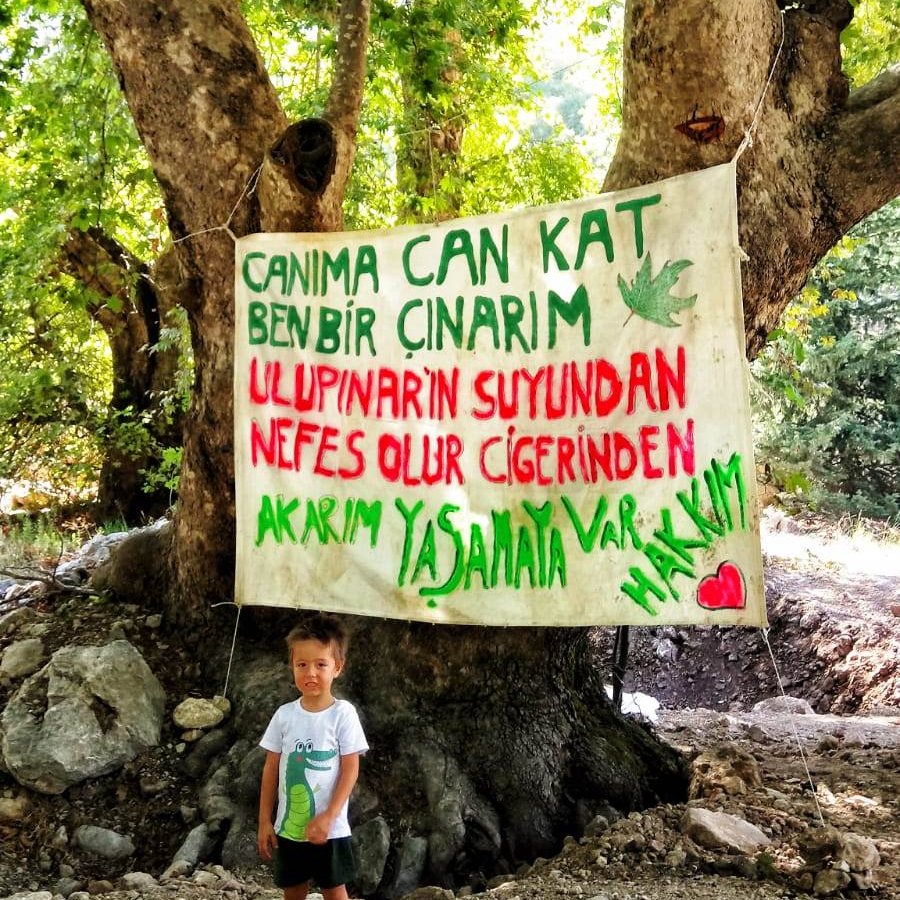 CANIMA CAN KAT
BEN BİR ÇINARIM
ULUPINAR'IN SUYUNDAN
NEFES OLUR CİGERİNDEN
AKARIM YAŞAMAYA VAR HAKKIM